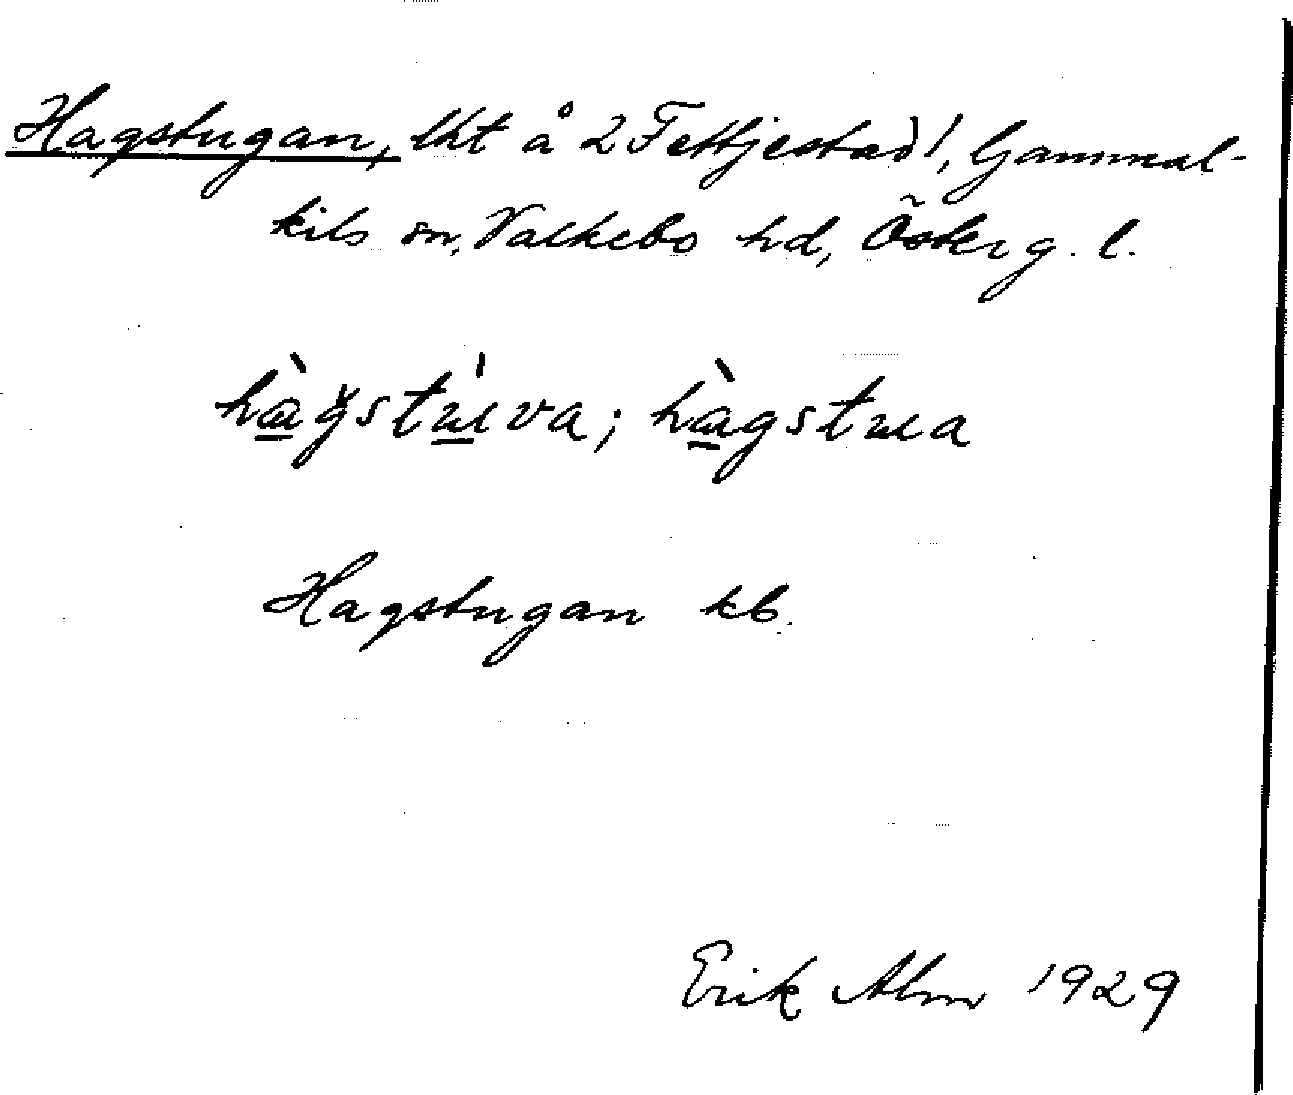 Hagstugan, lht å 2 Fettjestad!, Gammal-
kils sn, Valkebo hd, Österg. l.
Hagstugan kb.
Erik Alm 1929